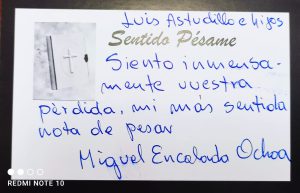 Luis Astudillo e hijos
Sentido Pésame
Siento inmensa-
mente vuestra
pèrdida, mi más sentida
nota de pesar
Miguel Encalada Ochoa
REDMI NOTE 10